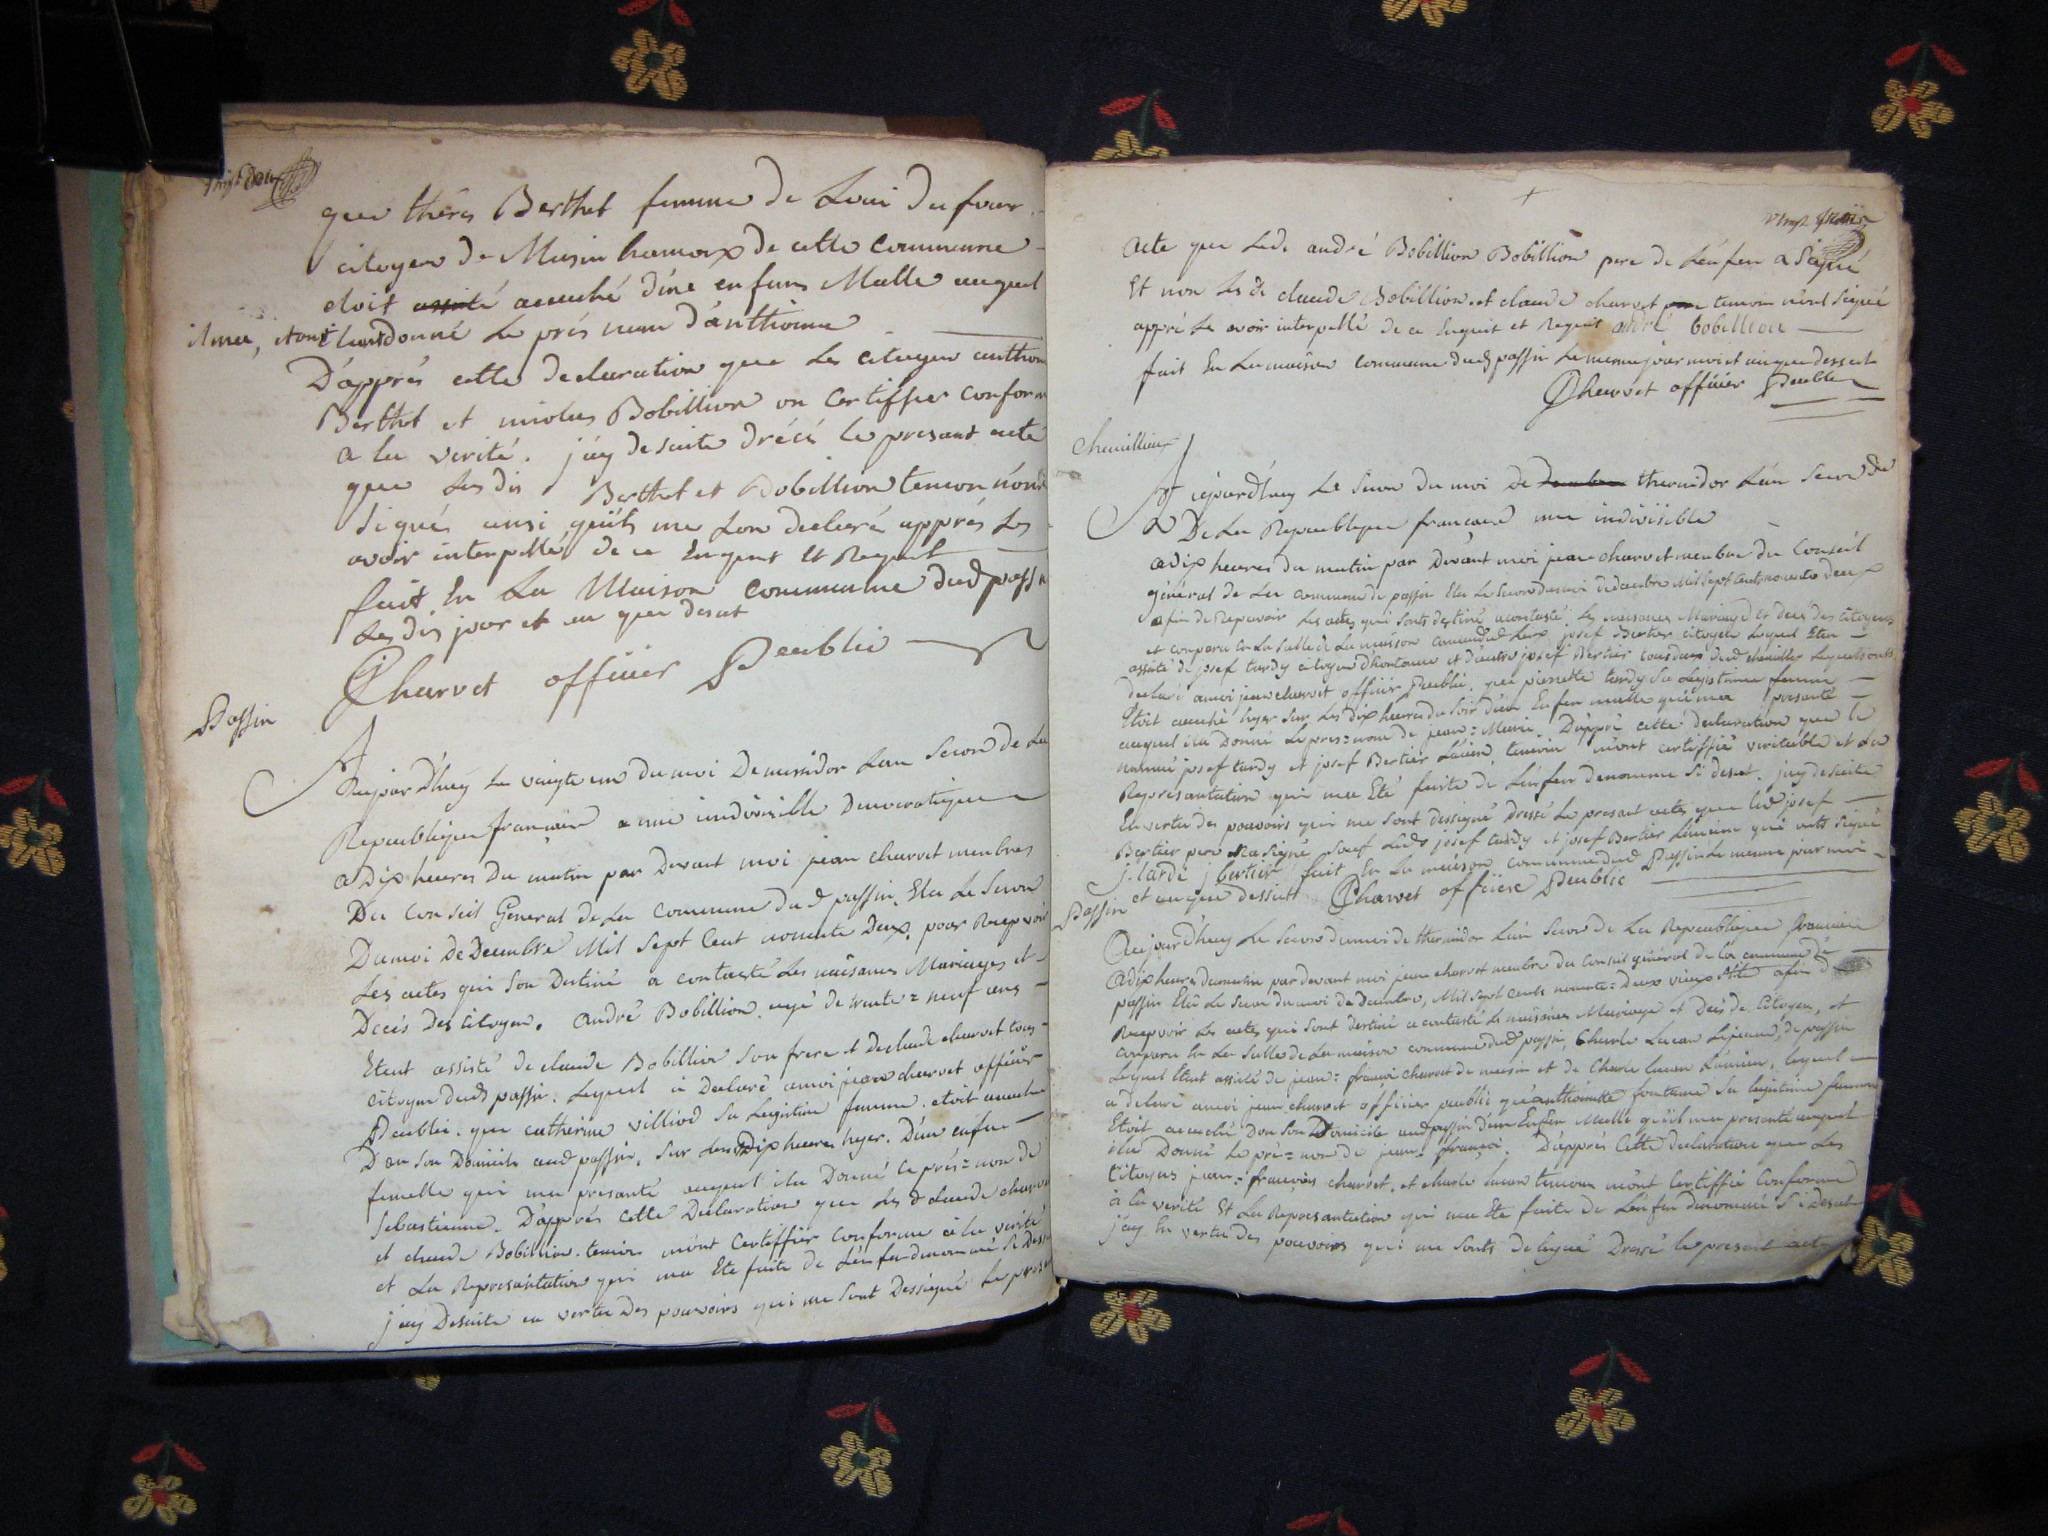 vingt deux
que thérés Berthet femme de Loui du four
citoyen de Musin hameaux de cette commune
etoit assisté accuché d'ine enfans Malle auquel
il mea, etant luns donné le prés nom d'anthoine
D'apprés cette declaration que les citoyen anthoin
Berthet et nicolas Bobillion on certiffier conform
a la verité. j'ay de suite drécé le presant acte
que lesdis Berthet et Bobillion temoin nónt
signés ainsi qu'ils me lon declaré apprés les
avoir interpellé de ce Enquent Et Requit
fait En La Maison commune dud passin
Les dis jour et an que desut
Charvet officier Peublic
Passin
Aujourd'huy le vaingte un du moi De mesidor Lan Secon de La
Republique française une indivisible Democratique
a Dix heures Du matin par Devant moi jean charvet menbres
Du Conseil General de La Commune dud passin, Elu Le Secon
Du moi de Decembre Mil Sept Cent nonente Deux, pour Recepvoir
Les actes qui Son Destiné a contasté Les naisances Mariages et
Décés Des Citoyen. André Bobillion, agé de trante = neuf ans
Etant assisté de claude Bobillion Son frere et de claude charvet tous
Citoyen dud passin, Lequel à Declaré amoi jean charvet officier
Peublic. que catherine villiod Sa Legistime femme, etoit accuché
D'an Son Domicile aud passin, Sur les Dix heures hyer, D'un enfan
femelle qui ma presanté auquel ila Donné Le prés = nom de
Sebastienne. D'apprés cette Declaration que Les d Claude charvet
et claude Bobillion temoin m'ont Certiffier Conforme à la verité
et La Represantation qui ma Ete faite de L'enfan denommé Si Dessu
j'ay Desuite en vertu Des pouvoirs qui me Sont Dessigné Le presan
vingt trois
acte que Led. andré Bobillion Bobillion pere de L'enfan a Signé
Et non Les d. claude Bobillion et claude charvet temoin n'ont signé
appré Le avoir interpellé de ce Enquit et Requit andré bobillion
fait En La maison commune dud passin Le meme jour moi et an que dessut
Charvet officier Peublic
Chemillieu
Aujourd'huy Le Secon du moi De thermidor L'an Second
De La Republique française une indivisible
a dix heures du matin par Devant moi jean charvet menbre du Conseil
général de La commune de passin Elu Le Secon du moi de decembre Mil Sept Cent nonente deux
afin de Recevoir Les actes qui Sont destiné a contasté, Les naisances Mariage et decé des Citoyens
et conparu En La Salle de La maison commune josef Bertier citoyen Lequel Etan
assisté de josef tardy citoyen et d'autre josef Bertier tous deux dud Chemillieu Lequels onts
declaré amoi jean charvet officier Peublic, que pierrette tardy Sa Legistime femme
Etoit accuché hyer Sur Les dix heures du Soir d'un Enfan malle qui ma presanté
auquel ila Donné Le pres = nom de jean = Marie. D'appré cette declaration que le
nommé josef tardy et josef Bertier L'ainé temoin m'ont certiffié veritable et La
Represantation qui ma Eté faite de L'enfan denommé Si desut. j'ay de suite
En vertu des pouvoirs qui me Sont dessigné Dressé Le presant acte que led josef
Bertier pere na Signé Souf Leds josef tardy et josef Bertier L'ainé qui onts signé
j. tardi j bertier fait En La maison commune dud Passin Le meme jour moi
et an que dessut Charvet officier Peublic
Passin
Aujourd'huy Le Secon du moi de thermidor L'an Secon de La Republique francaise
a dix heures du matin par devant moi jean charvet menbre du Conseil général de la commune de
passin Elu Le Secon du moi de Decembre, Mil Sept Cents nonente = Deux vieux Stile afin d
Recepvoir Les actes qui Sont destiné a contasté Les naisances Mariage et Décé de Citoyen, et
conparu En La Salle de La maison commune dud passin, Charle Lucan de passin
Lequel Etant assisté de jean = françoi charvet de musin et de Charle Lucan L'ainé, Lequel
a déclaré amoi jean charvet officier peublic que anthoinette fontaine Sa Legistime femme
Etoit accuché D'an Son Domicile aud passin d'un Enfan Malle qu'il ma presanté auquel
ila Donné Le pré = nom de jean = françoi. D'apprés cette declaration que Les
Citoyens jean = françois charvet, et charle Lucan temoin m'ont Certiffié Conforme
à la verité Et La Represantation qui ma Ete faite de L'enfan denommé Si Desut
j'ay En vertu des pouvoirs qui me Sonts delegué Dressé le presant act